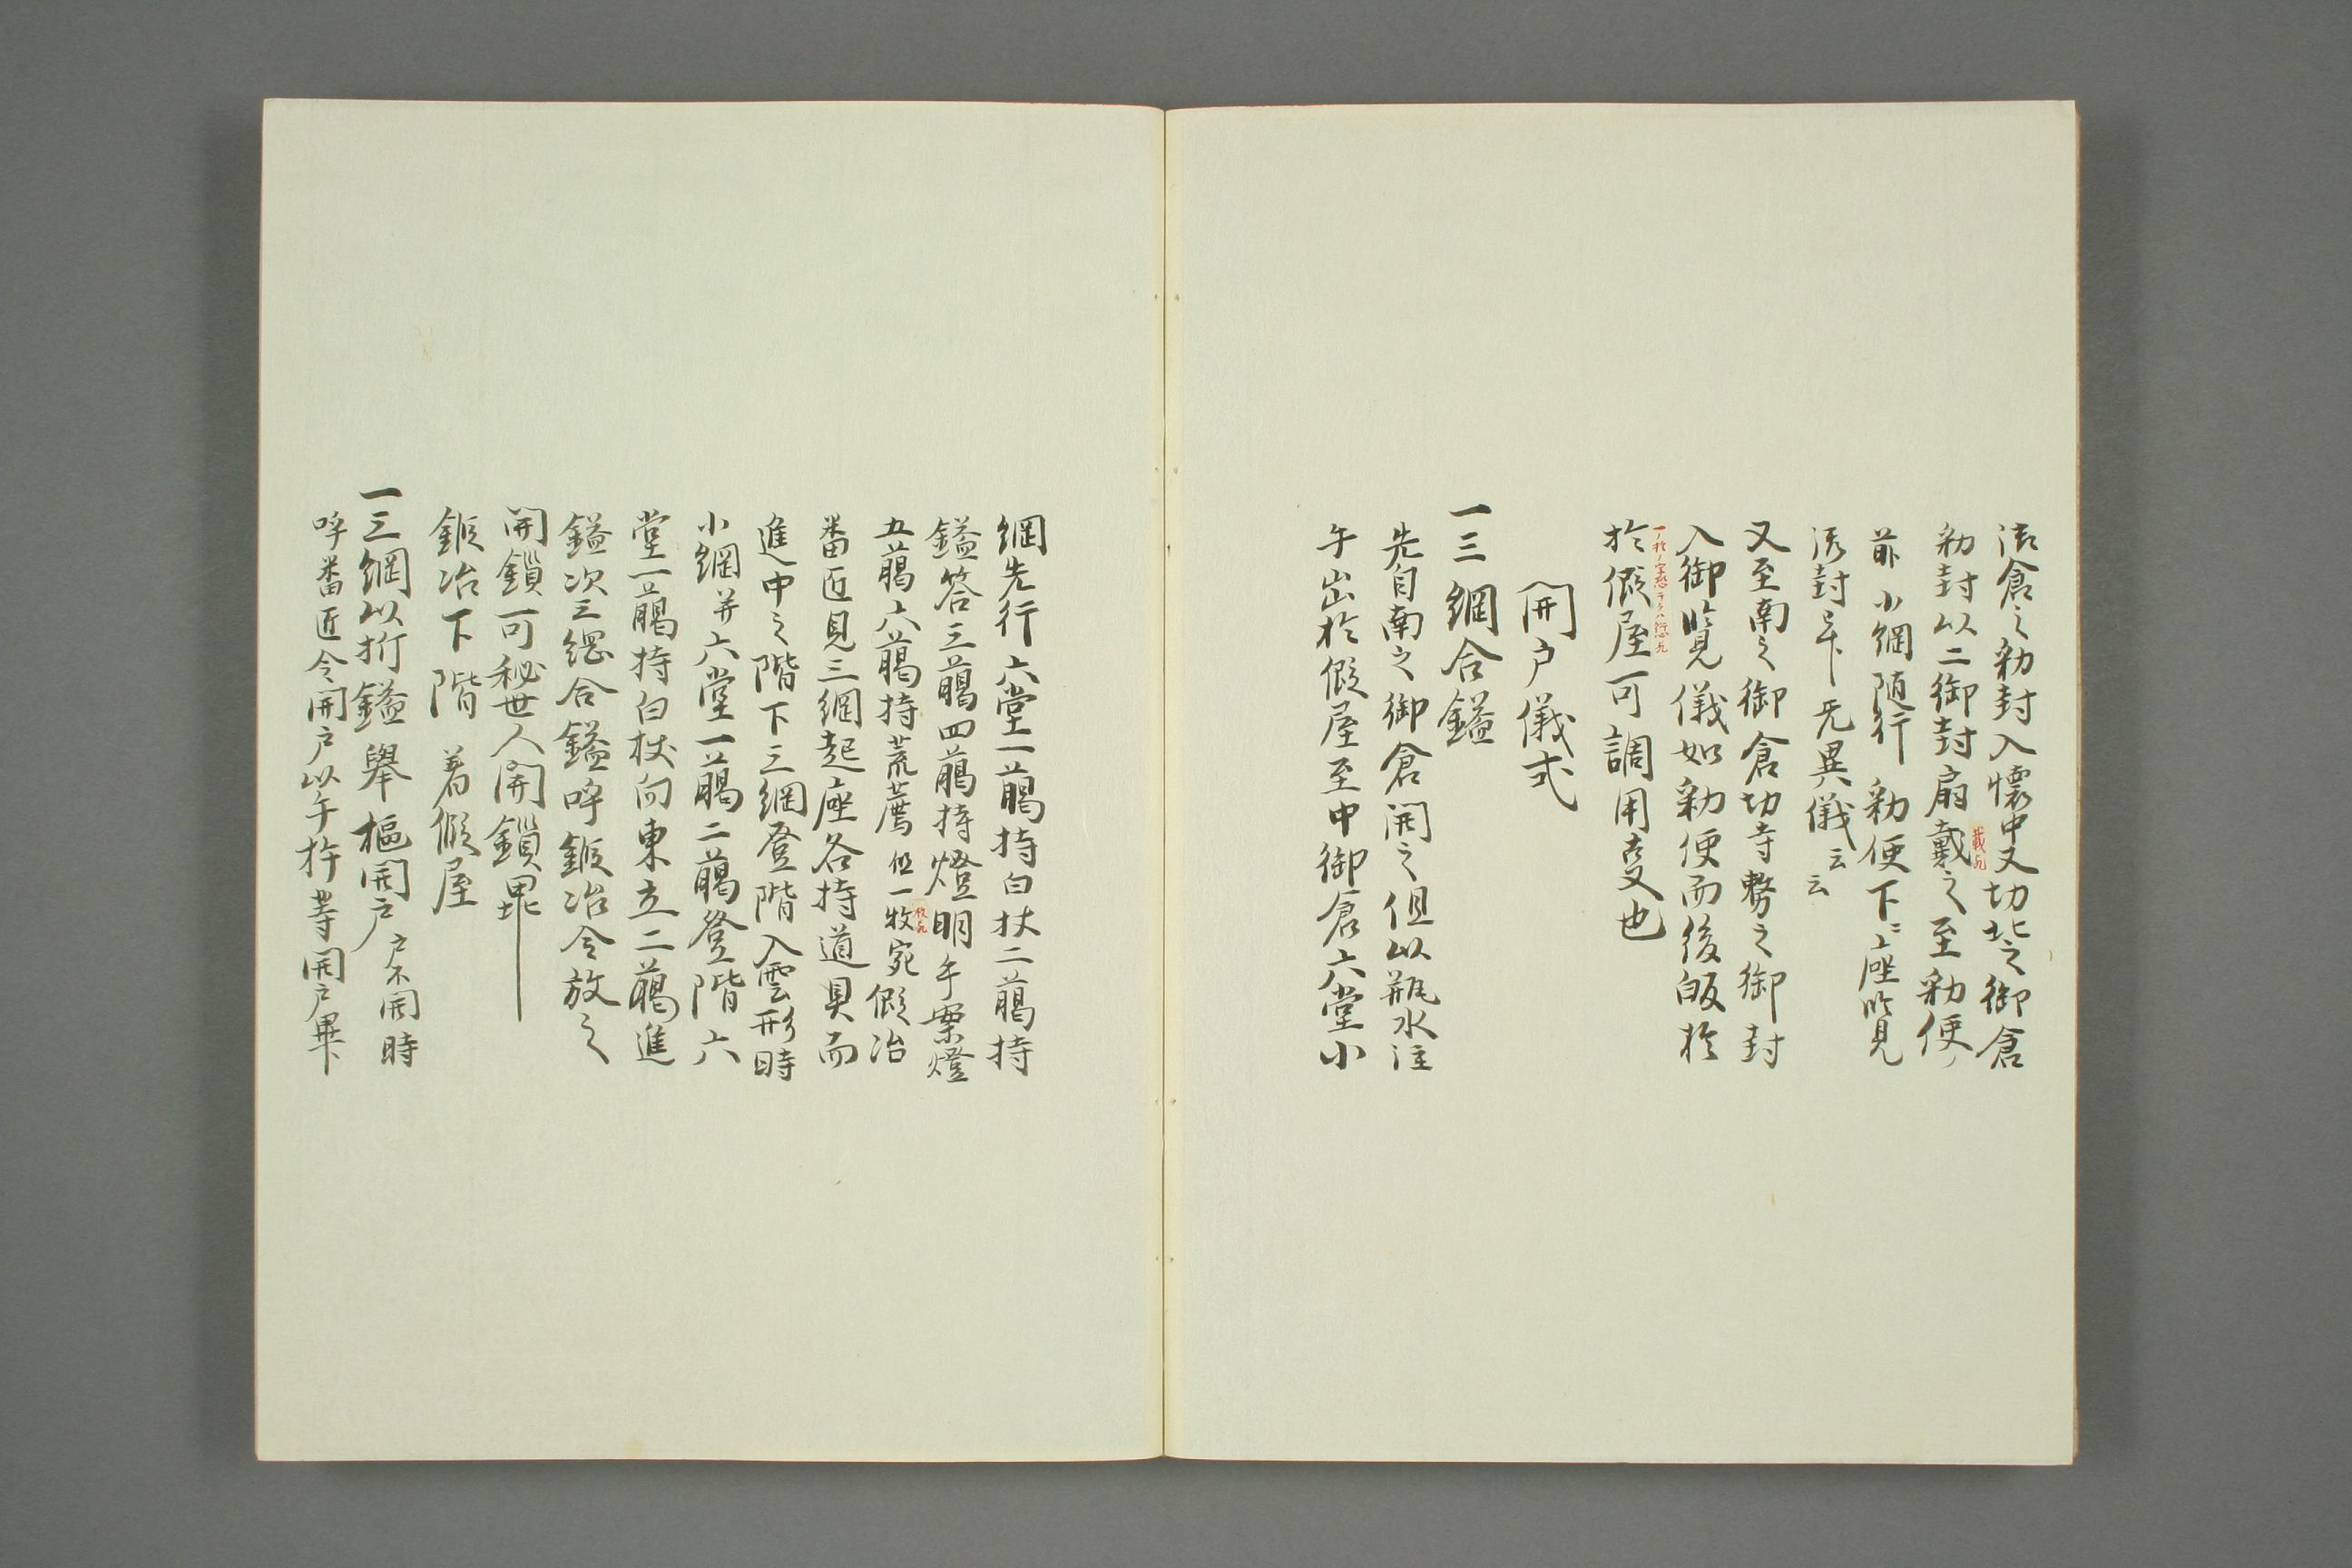 法倉之勅封入懐中又切北之御倉
勅封以二御封扇戴之至勅使
載乎
前小綱随行勅使下上座覧
封畢无異儀云云
又至南之御倉切寺務之御封
入御覧儀如勅使而後皈於
於假屋可調用意也
開戸儀式
一三綱合鎰
先自南之御倉開之但以瓶水注
午出於假屋至中御倉六堂小
綱先行六堂一﨟持白杖二﨟持
鎰筥三﨟四﨟持燈明
五﨟六﨟持荒薦但一枚宛假冶
番匠見三綱起座各持道具而
進中之階下三綱登階入雲形時
小綱并六堂一﨟二﨟登階六
堂一﨟持白杖向東立二﨟進
鎰次三綱合鎰呼鍜冶令放之
開鎖可秘世人開鎖畢
鍜冶下階着假屋
一三綱以桁鎰舉樞開戸戸不開時
呼番匠令開戸以手杵等開戸畢